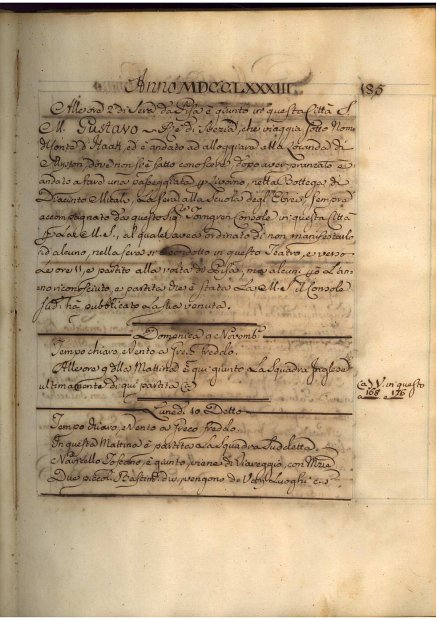 Anno MDCCLXXXIII.
185
Alle ore 2 di Sera da Pisa è giunto in questa Città S.
M. GUSTAVO Re di Svezia, che viaggia sotto Nome
di Conte d'Haak, ed è andato ad alloggiare alla Locanda di
dove non s'è fatto conoscere, dopo aver pranzato è
andato a fare una passeggiata p Livorno, nella Bottega di
Giacinto Micali, e la sera alla Scuola degl'Ebrei, sempre
accompagnato da questo Sig. Console in questa Città
M. S., al quale aveva ordinato di non manifestarlo
ad alcuno, nella sera si è condotto in questo Teatro, e verso
le ore 11 è partito alla volta di Pisa, ma alcuni già l'an-
no riconosciuto, e partita che è stata la M. S. il Console
Sud. ha pubblicato la sua venuta.
Domenica 9 Novemb.
Tempo chiaro, e Vento a Greco freddo.
Alle ore 9 della Mattina è qui giunto la Squadra Inglese
ultimamente di qui partita (a)
(a) V. in questo
a 168 e 176
Lunedì 10 Detto
Tempo chiaro, e Vento a Greco freddo.
In questa Mattina è partita la Squadra Sudetta.
Navicello Toscano, è giunto, viene di Viareggio, con
Due piccoli Bastim. vengono de Luoghi c. s.